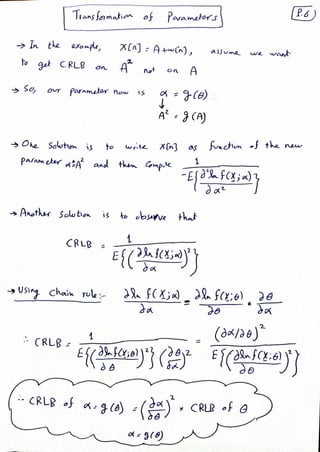 Transformation of Parameters
P.6
→ In the example, X[n] = A + w[n], assume we want
to get CRLB on A² not on A
→ So, our parameter now is α = g(θ)
↓ ↓
A² = g(A)
→ One Solution is to write X[n] as function of the new
parameter α=A² and then Compute 1 / -E{∂²ln f(X;α) / ∂α²}
→ Another Solution is to observe that
CRLB = 1 / E{(∂ln f(X;α) / ∂α)²}
→ Using Chain rule:- ∂ln f(X;α) / ∂α = ∂ln f(X;θ) / ∂θ · ∂θ / ∂α
∴ CRLB = 1 / E{(∂ln f(X;θ) / ∂θ)²} (∂θ / ∂α)² = (∂α/∂θ)² / E{(∂ln f(X;θ) / ∂θ)²}
∴ CRLB of α = g(θ) = (∂α / ∂θ)² × CRLB of θ
α = g(θ)